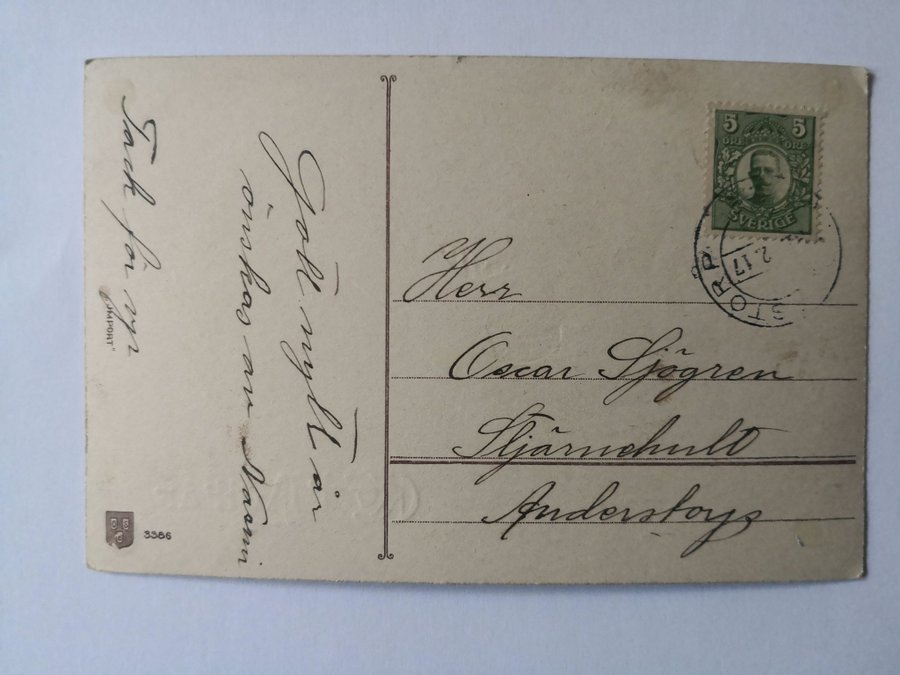 Tack för
Gott nytt år
önskas av
"IMPORT"
3386
5 5
ÖRE ÖRE
SVERIGE
STORP
2.17
Herr
Oscar Sjögren
Stjärnehult
Anderstorp